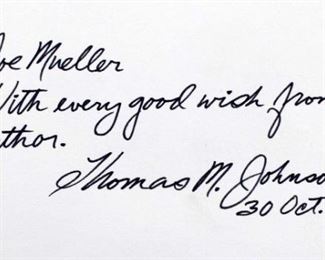 oe Mueller
With every good wish from
thor.
Thomas M. Johnso
30 Oct.